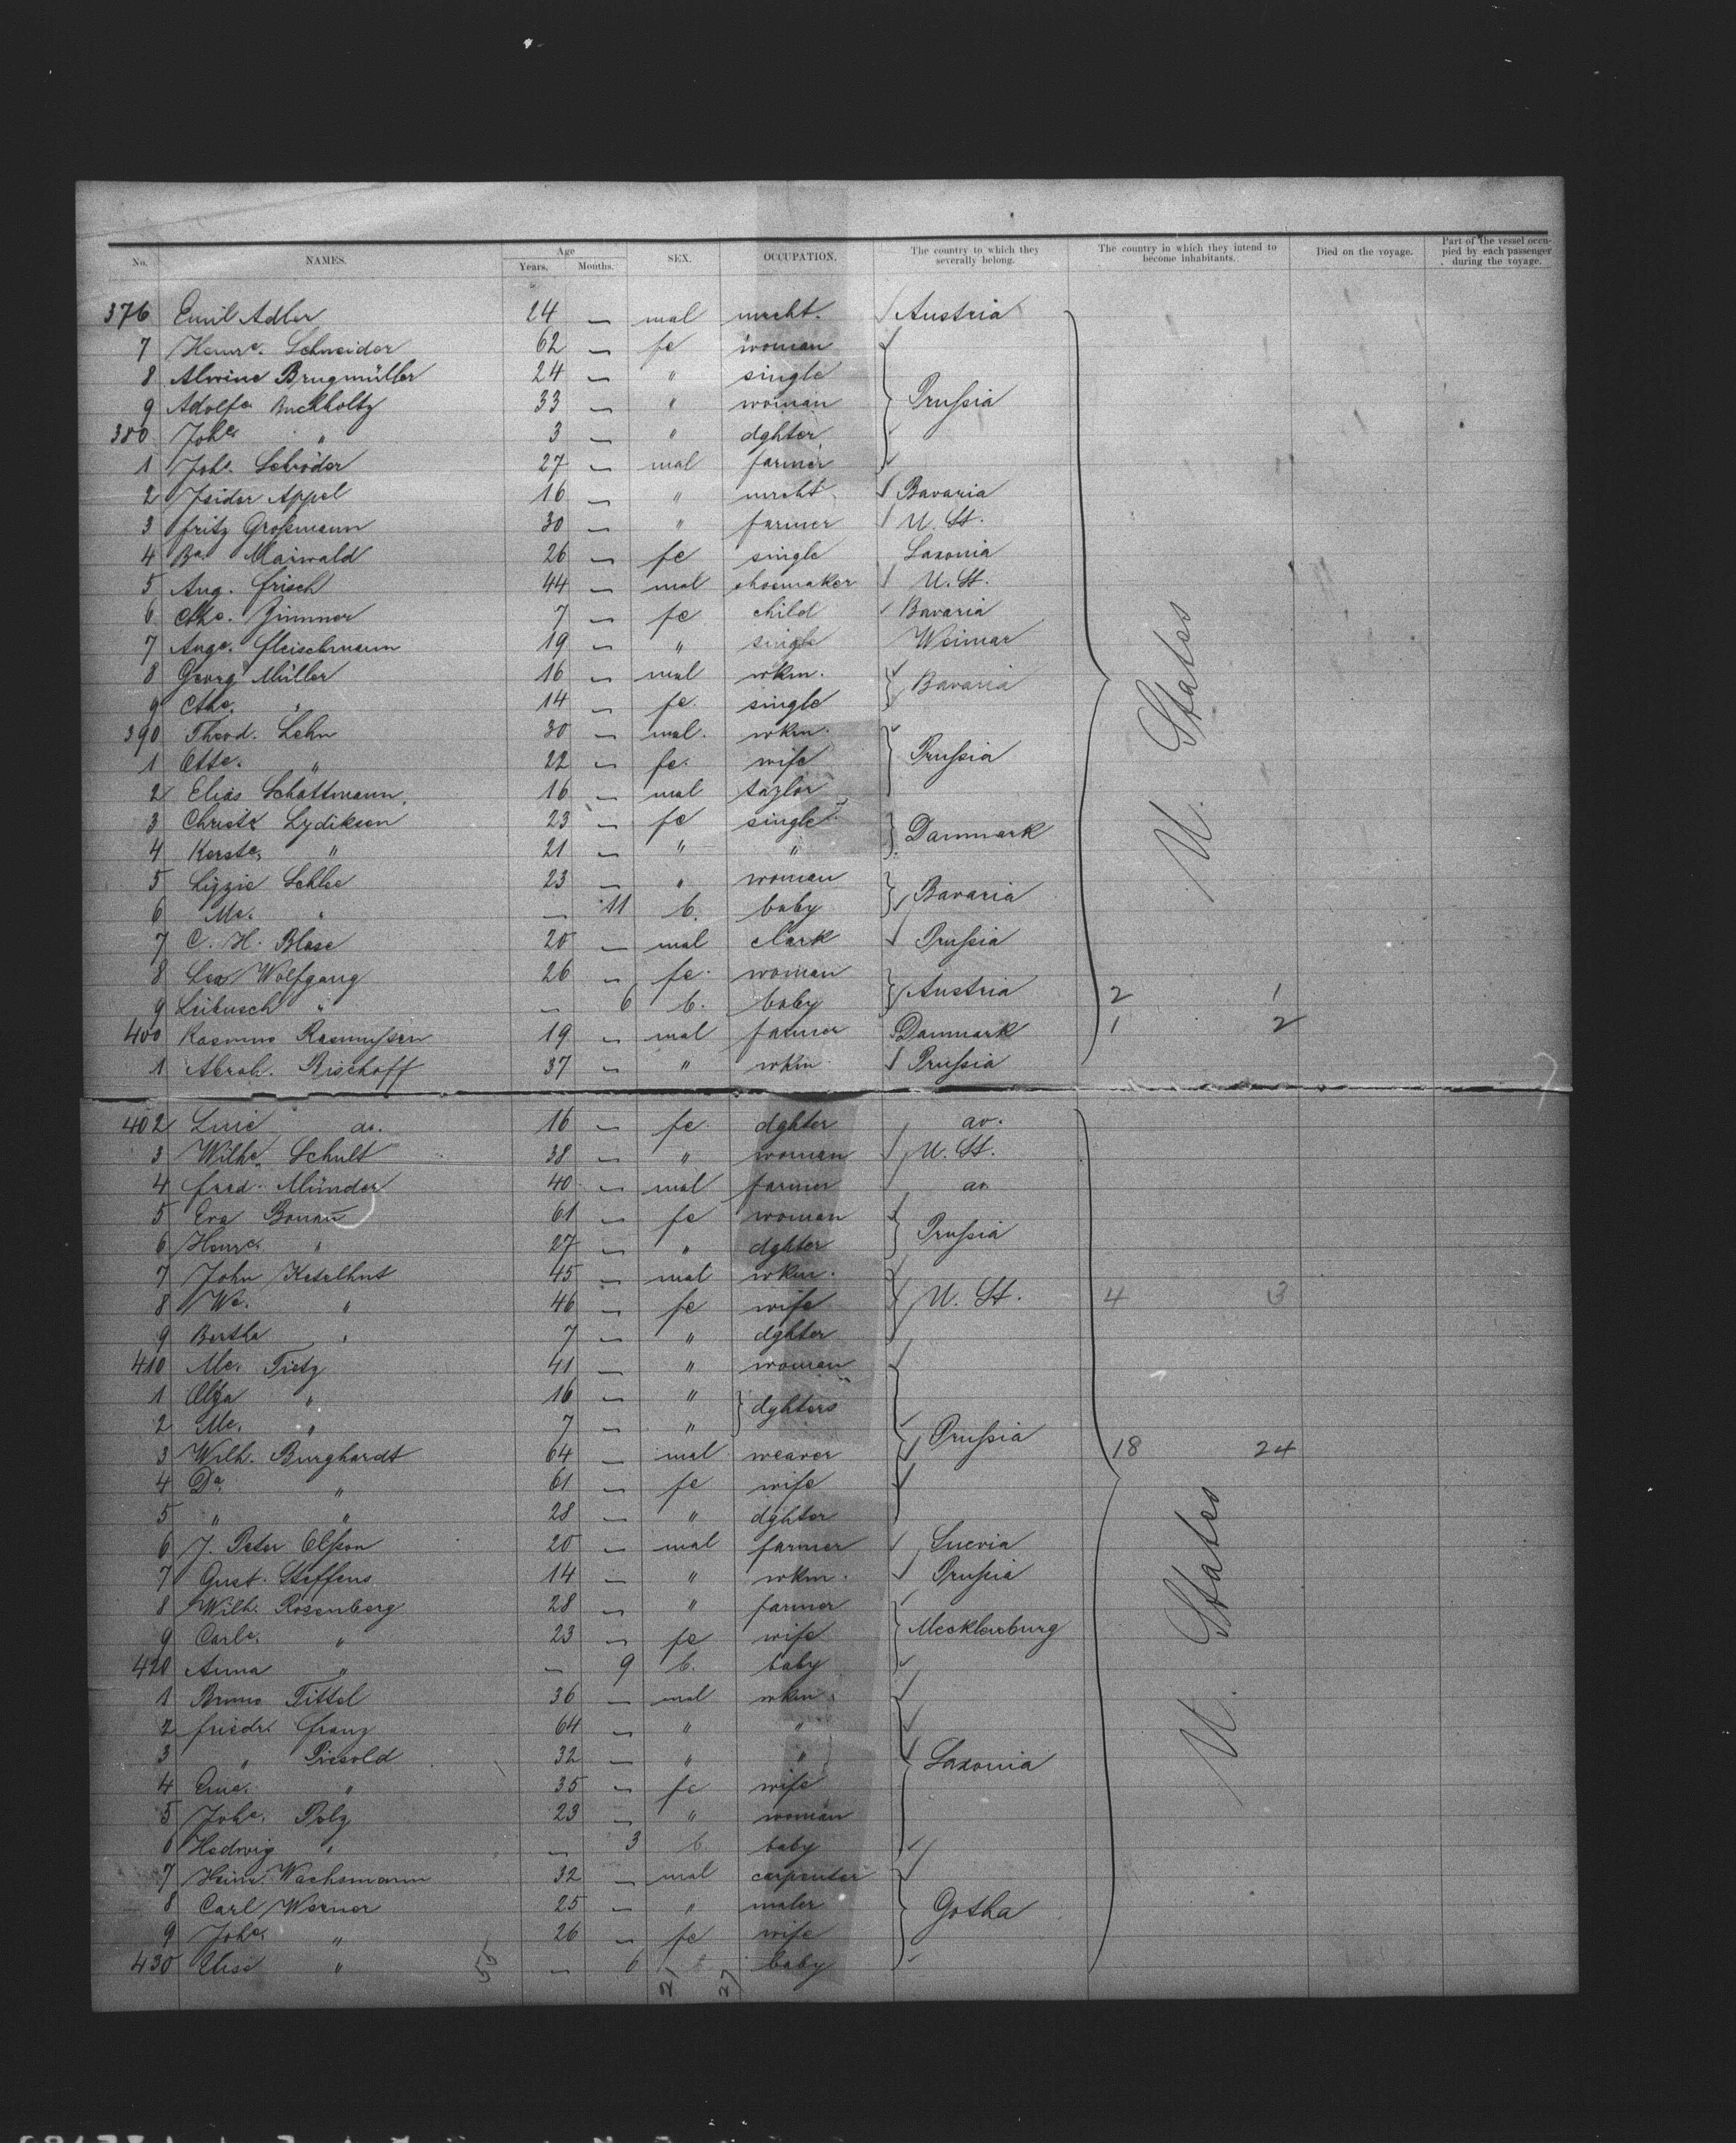 No. NAMES. Age Years. Months. SEX. OCCUPATION. The country to which they severally belong. The country in which they intend to become inhabitants. Died on the voyage. Part of the vessel occupied by each passenger during the voyage.
376 Emil Adler 24 — mal mrcht. Austria
7 Henre. Schneider 62 — fe woman
8 Alwine Brugmüller 24 — " single
9 Adolfe Buckholtz 33 — " woman Prußia
380 Johe. " 3 — " dghter
1 Johs. Schröder 27 — mal farmer
2 Isidor Appel 16 — " mrcht Bavaria
3 Fritz Großmann 30 — " farmer U. St.
4 Ba. Maiwald 26 — fe single Saxonia
5 Aug. Frisch 44 — mal shoemaker U. St.
6 Cthe. Zimmer 7 — fe child Bavaria
7 Auge. Fleischmann 19 — " single Weimar
8 Georg Müller 16 — mal wkm. Bavaria
9 Cthe. " 14 — fe. single
U. States
390 Theod. Lehn 30 — mal. wkm.
1 Otte. " 22 — fe. wife Prußia
2 Elias Schattmann 16 — mal taylor
3 Christe Lydiksen 23 — fe single Danmark
4 Kerste. " 21 — " "
5 Lizzie Schlee 23 — " woman Bavaria
6 Me. " — 11 b. baby
7 C. H. Blase 20 — mal clark Prußia
8 Lea Wolfgang 26 — fe. woman Austria
9 Leibusch " — 6 b. baby 2 1
400 Rasmus Rasmußen 19 — mal farmer Danmark 1 2
1 Abrah. Bischoff 37 — " wkm Prußia
402 ao. 16 — fe dghter ao.
3 Wilhe. Schult 38 — " woman U. St.
4 Fred. Münder 40 — mal farmer ao
5 Eva Bonau 61 — fe woman Prußia
6 Henre. " 27 — " dghter
7 John Keselhut 45 — mal wkm.
8 We. " 46 — fe wife U. St. 4 3
9 Bertha " 7 — " dghter
410 Me. Tietz 41 — " woman
1 Olga " 16 — " dghters
2 Me. " 7 — "
3 Wilh. Burghardt 64 — mal weaver Prußia 18 24
4 Da. " 61 — fe wife
5 " " 28 — " dghter
6 J. Peter Olßon 20 — mal farmer Suevia
7 Gust. Steffens 14 — " wkm. Prußia
8 Wilh. Rosenberg 28 — " farmer
9 Carle. " 23 — fe wife Mecklenburg
U. States
420 Anna " — 9 b. baby
1 Bruno Tittel 36 — mal wkm.
2 Friedr. Franz 64 — " "
3 " Piesold 32 — " " Saxonia
4 " 35 — fe wife
5 Johe. Polz 23 — " woman
6 Hedwig " — 3 b. baby
7 Heinr. Wachsmann 32 — mal carpenter
8 Carl Werner 25 — " maler Gotha
9 Johe. " 26 — fe wife
430 Elise " — 6 baby